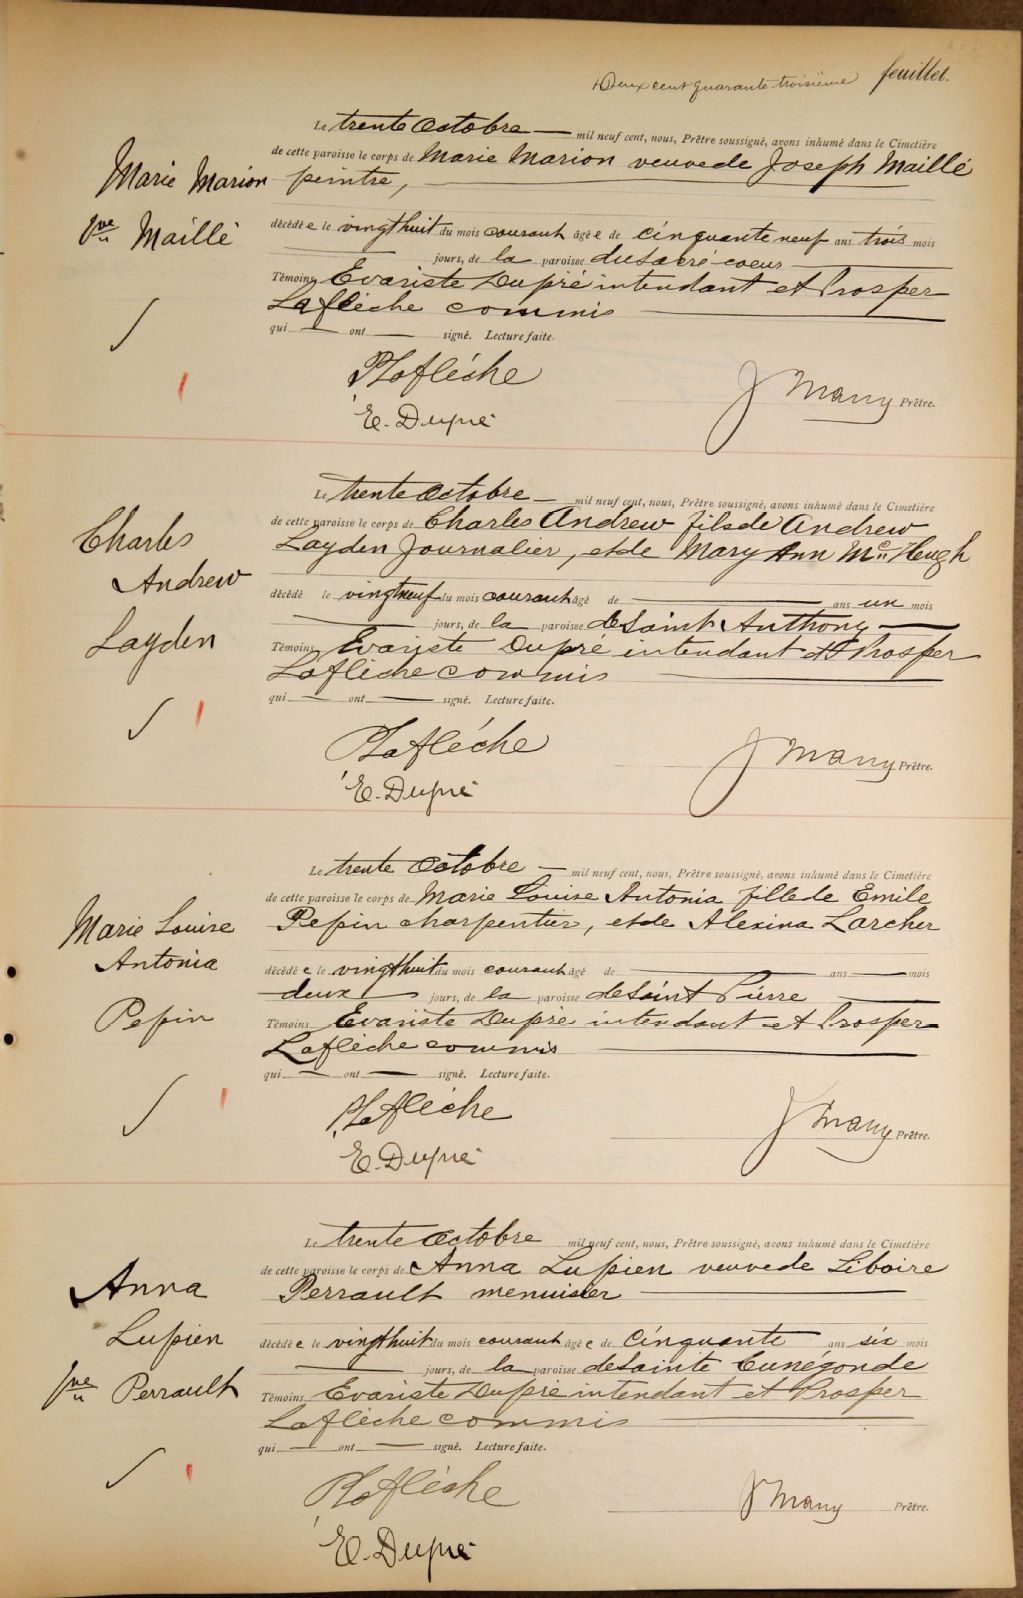 Deux cent quarante troisième feuillet.
Le trente Octobre — mil neuf cent, nous, Prêtre soussigné, avons inhumé dans le Cimetière
de cette paroisse le corps de Marie Marion veuve de Joseph Maillé
Marie Marion
peintre,
Vve Maillé
décédée le vingthuit du mois courant âgée de cinquante neuf ans trois mois
jours, de la paroisse du Sacré-coeur
Témoins Evariste Dupré intendant et Prosper
Laflèche commis
qui — ont — signé. Lecture faite.
PLaflèche
J Many Prêtre.
E. Dupré
Le trente Octobre — mil neuf cent, nous, Prêtre soussigné, avons inhumé dans le Cimetière
de cette paroisse le corps de Charles Andrew fils de Andrew
Charles
Layden Journalier, et de Mary Ann Mc Heugh
Andrew
décédé le vingtneuf du mois courant âgé de — ans un mois
Layden
— jours, de la paroisse de Saint Anthony —
Témoins Evariste Dupré intendant et Prosper
Laflèche commis
qui — ont — signé. Lecture faite.
PLaflèche
J Many Prêtre.
E. Dupré
Le trente Octobre — mil neuf cent, nous, Prêtre soussigné, avons inhumé dans le Cimetière
de cette paroisse le corps de Marie Louise Antonia fille de Emile
Marie Louise
Pepin charpentier, et de Alexina Larcher
Antonia
décédée le vingthuit du mois courant âgé de — ans — mois
deux jours, de la paroisse de Saint Pierre
Pepin
Témoins Evariste Dupré intendant et Prosper
Laflèche commis
qui — ont — signé. Lecture faite.
PLaflèche
J Many Prêtre.
E. Dupré
Le trente Octobre mil neuf cent, nous, Prêtre soussigné, avons inhumé dans le Cimetière
de cette paroisse le corps de Anna Lupien veuve de Liboire
Anna
Perrault menuisier
Lupien
décédée le vingthuit du mois courant âgée de Cinquante ans six mois
— jours, de la paroisse de Sainte Cunégonde
Vve Perrault
Témoins Evariste Dupré intendant et Prosper
Laflèche commis
qui — ont — signé. Lecture faite.
PLaflèche
J Many Prêtre.
E. Dupré